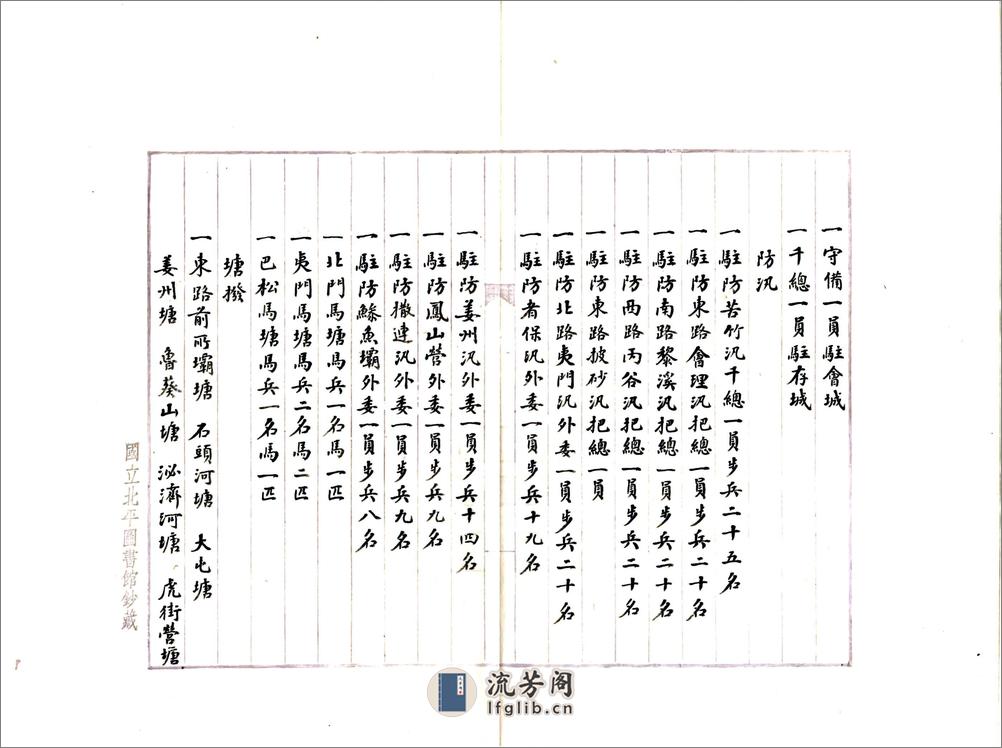 一守備一員駐會城
一千總一員駐存城
防汛
一駐防苦竹汛千總一員步兵二十五名
一駐防東路會理汛把總一員步兵二十名
一駐防南路黎溪汛把總一員步兵二十名
一駐防西路丙谷汛把總一員步兵二十名
一駐防東路披砂汛把總一員
一駐防北路夷門汛外委一員步兵二十名
一駐防者保汛外委一員步兵十九名
一駐防姜州汛外委一員步兵十四名
一駐防鳳山營外委一員步兵九名
一駐防撒連汛外委一員步兵九名
一駐防鯵魚壩外委一員步兵八名
一北門馬塘馬兵一名馬一匹
一夷門馬塘馬兵二名馬二匹
一巴松馬塘馬兵一名馬一匹
塘撥
一東路前所壩塘 石頭河塘 大屯塘
姜州塘 魯葵山塘 泌濟河塘 虎街營塘
國立北平圖書館鈔藏
流芳阁
lfglib.cn